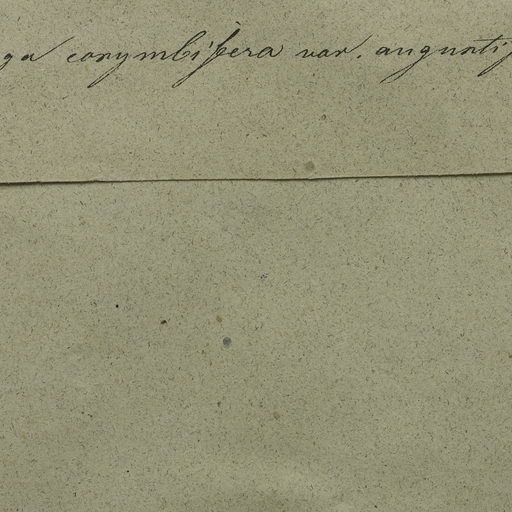 ga corymbifera var. angusti